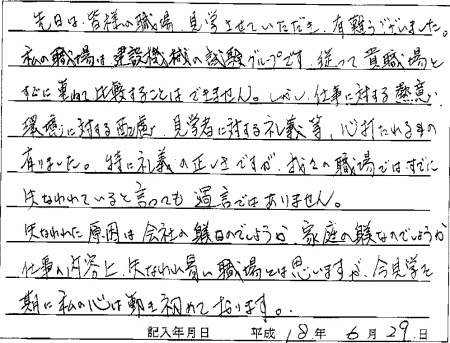 先日は、皆様の職場、見学させていただき、有難うございました。
私の職場は建設機械の試験グループです。従って貴職場と
すぐに重ねて比較することはできません。しかし、仕事に対する熱意、
環境に対する配慮、見学者に対する礼義等、心打たれるもの
有りました。特に礼義の正しさですが、我々の職場ではすでに
失なわれていると言っても過言ではありません。
失なわれた原因は会社の躾なのでしょうか 家庭の躾なのでしょうか
仕事の内容上、失なわれ易い職場とは思いますが、今見学を
期に私の心は動き初めております。
記入年月日 平成 18年 6月 29日